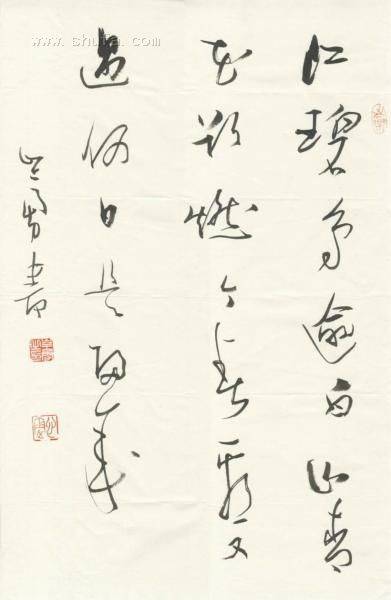 江碧鳥逾白山青
花欲燃今春看又
過何日是歸年
書
www.shufa.com